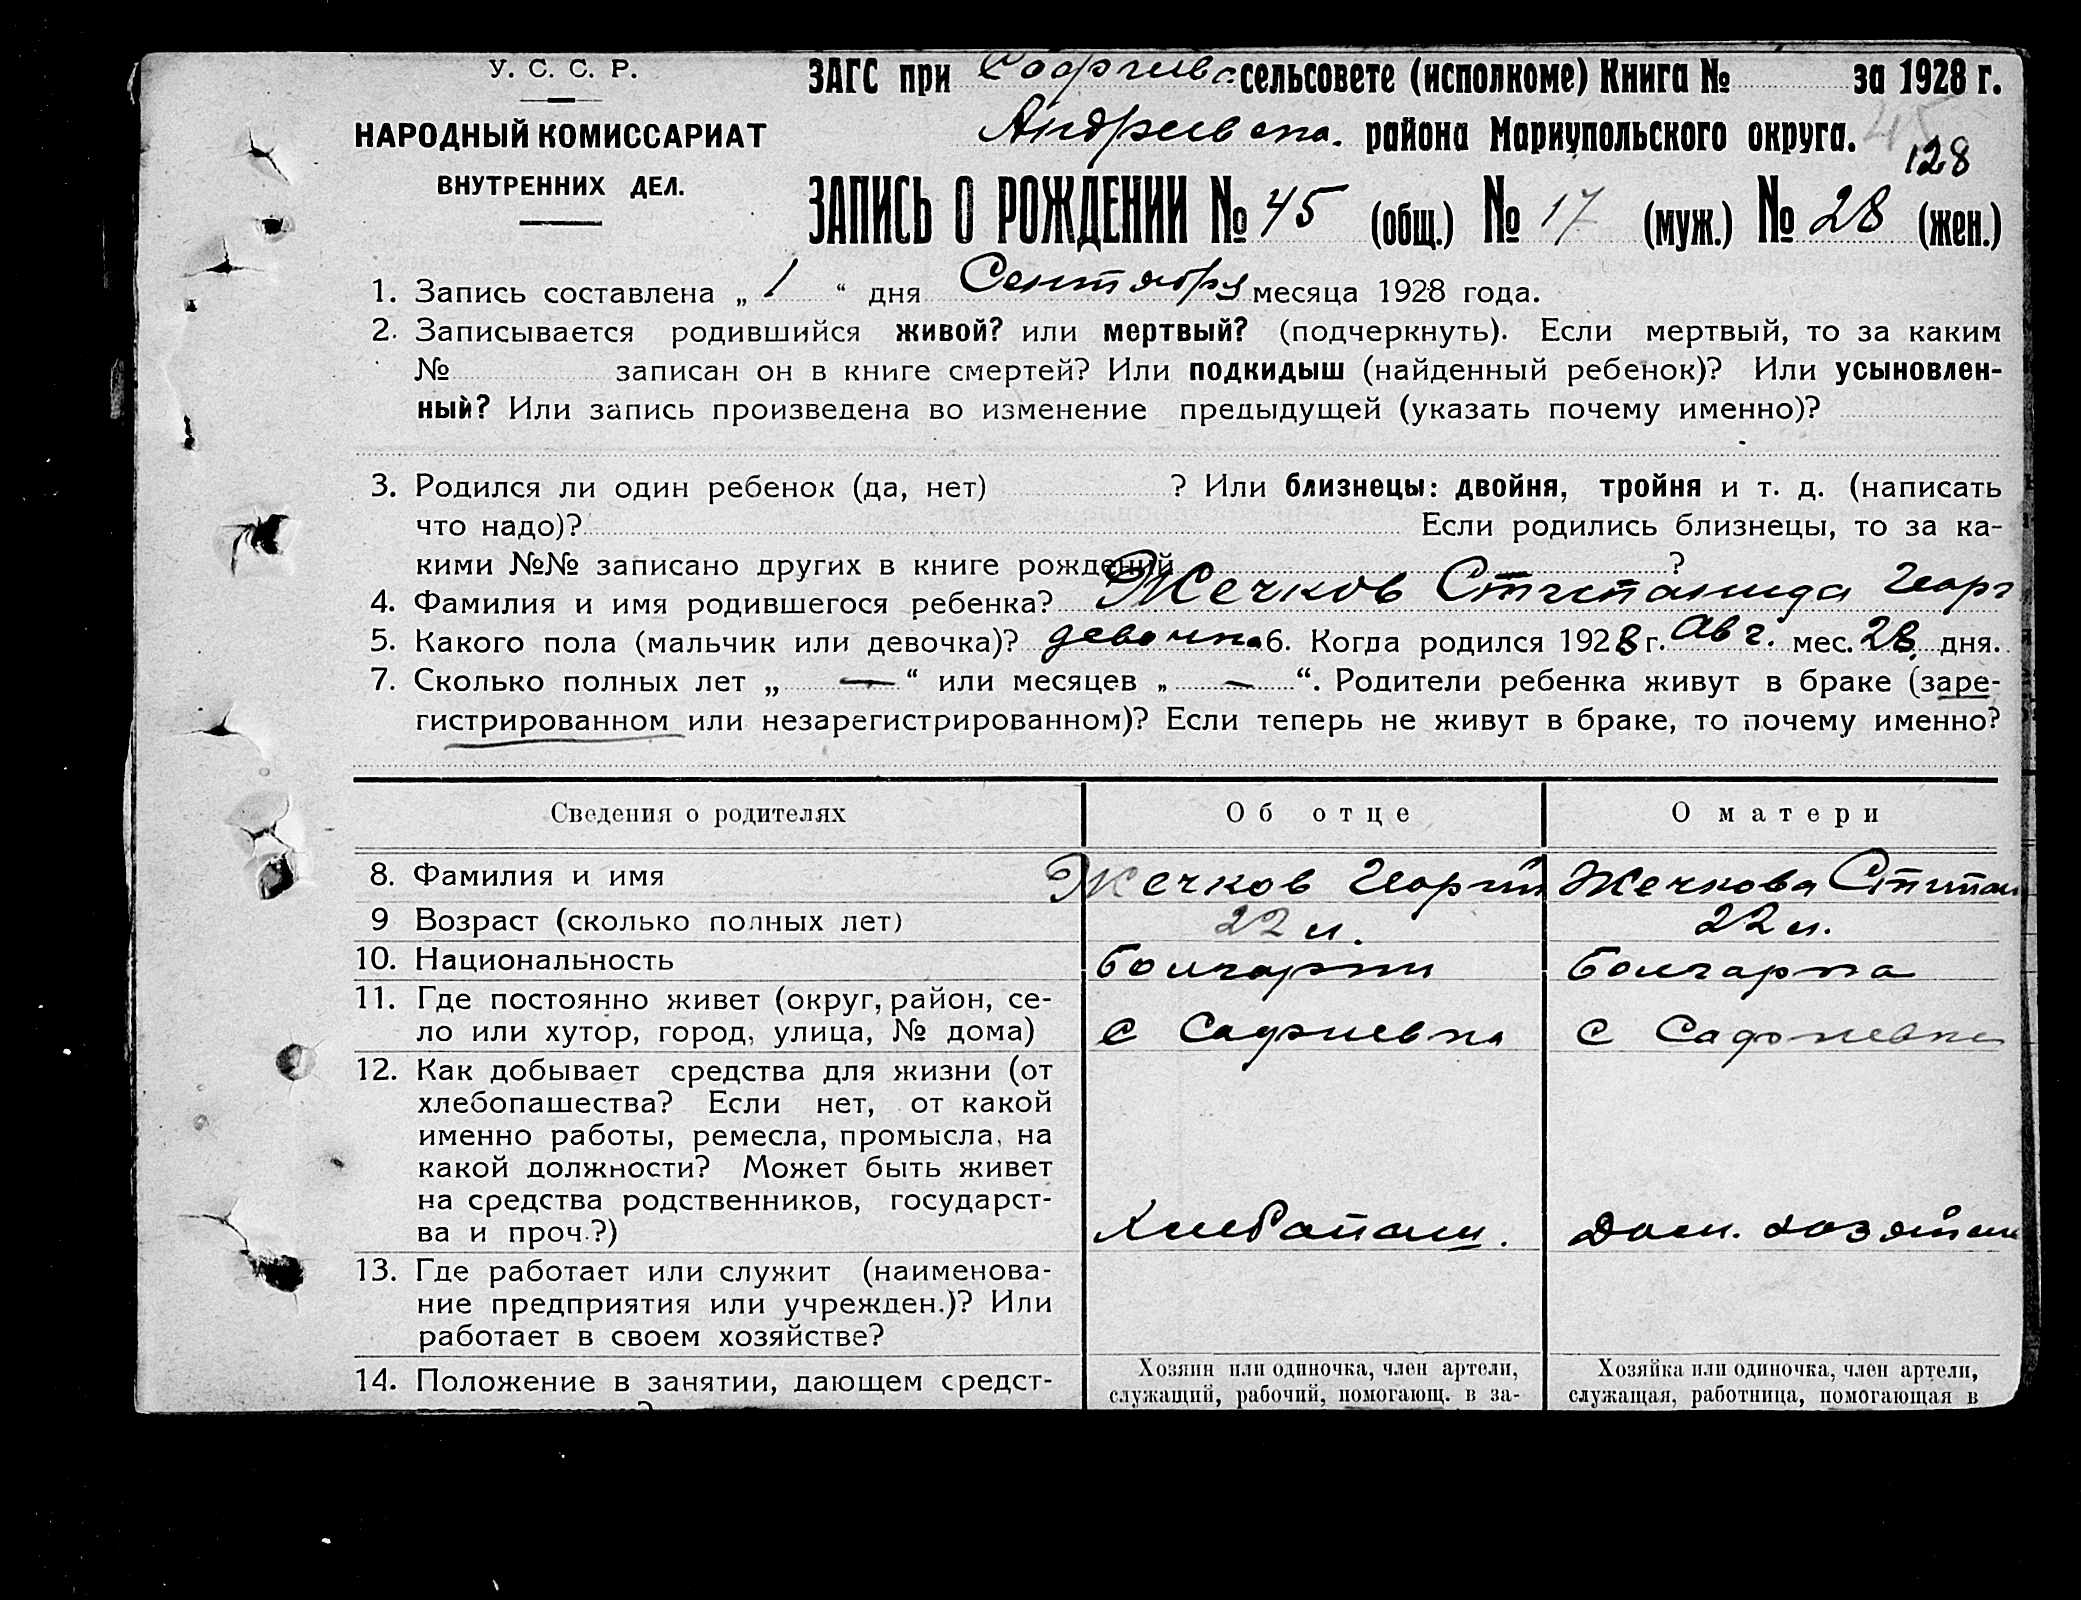 У. С. С. Р.
НАРОДНЫЙ КОМИССАРИАТ
ВНУТРЕННИХ ДЕЛ.
ЗАГС при сельсовете (исполкоме) Книга № за 1928 г.
района Мариупольского округа.
128
ЗАПИСЬ О РОЖДЕНИИ № 45 (общ.) № 17 (муж.) № 28 (жен.)
1. Запись составлена „ 1 “ дня Сентября месяца 1928 года.
2. Записывается родившийся живой? или мертвый? (подчеркнуть). Если мертвый, то за каким
№ записан он в книге смертей? Или подкидыш (найденный ребенок)? Или усыновлен-
ный? Или запись произведена во изменение предыдущей (указать почему именно)?
3. Родился ли один ребенок (да, нет) ? Или близнецы: двойня, тройня и т. д. (написать
что надо)? Если родились близнецы, то за ка-
кими №№ записано других в книге рождений ?
4. Фамилия и имя родившегося ребенка? Жечков Геор
5. Какого пола (мальчик или девочка)? девочка 6. Когда родился 1928 г. Авг. мес. 28 дня.
7. Сколько полных лет „ — “ или месяцев „ — “. Родители ребенка живут в браке (заре-
гистрированном или незарегистрированном)? Если теперь не живут в браке, то почему именно?
Сведения о родителях Об отце О матери
8. Фамилия и имя Жечков Георгий Жечкова
9 Возраст (сколько полных лет) 22 л. 22 л.
10. Национальность болгарин болгарка
11. Где постоянно живет (округ, район, се-
ло или хутор, город, улица, № дома) с с
12. Как добывает средства для жизни (от
хлебопашества? Если нет, от какой
именно работы, ремесла, промысла, на
какой должности? Может быть живет
на средства родственников, государст-
ва и проч.?) Дом.
13. Где работает или служит (наименова-
ние предприятия или учрежден.)? Или
работает в своем хозяйстве?
14. Положение в занятии, дающем средст-
Хозяин или одиночка, член артели,
служащий, рабочий, помогающ. в за-
Хозяйка или одиночка, член артели,
служащая, работница, помогающая в